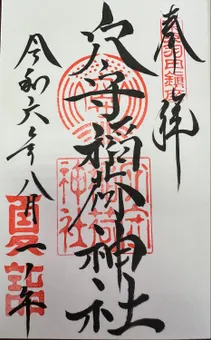 奉拝
穴守稲荷神社
令和六年八月一午
夏詣